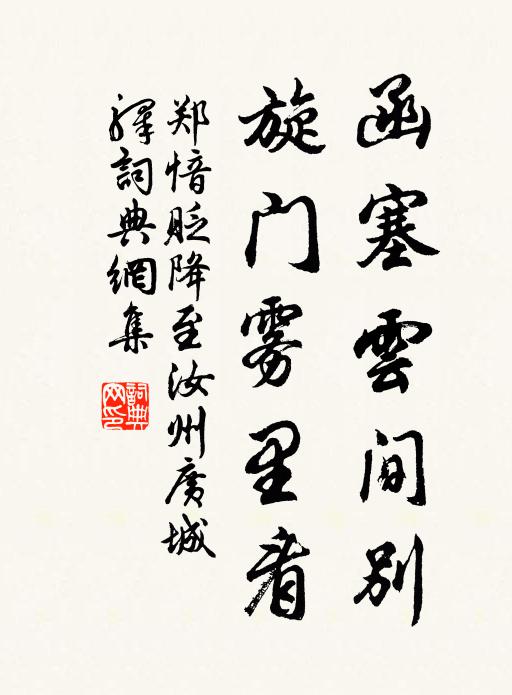 函塞雲间别
旋门雾里看
郑愔貶降至汝州廣城
驛詞典網集
詞典网印